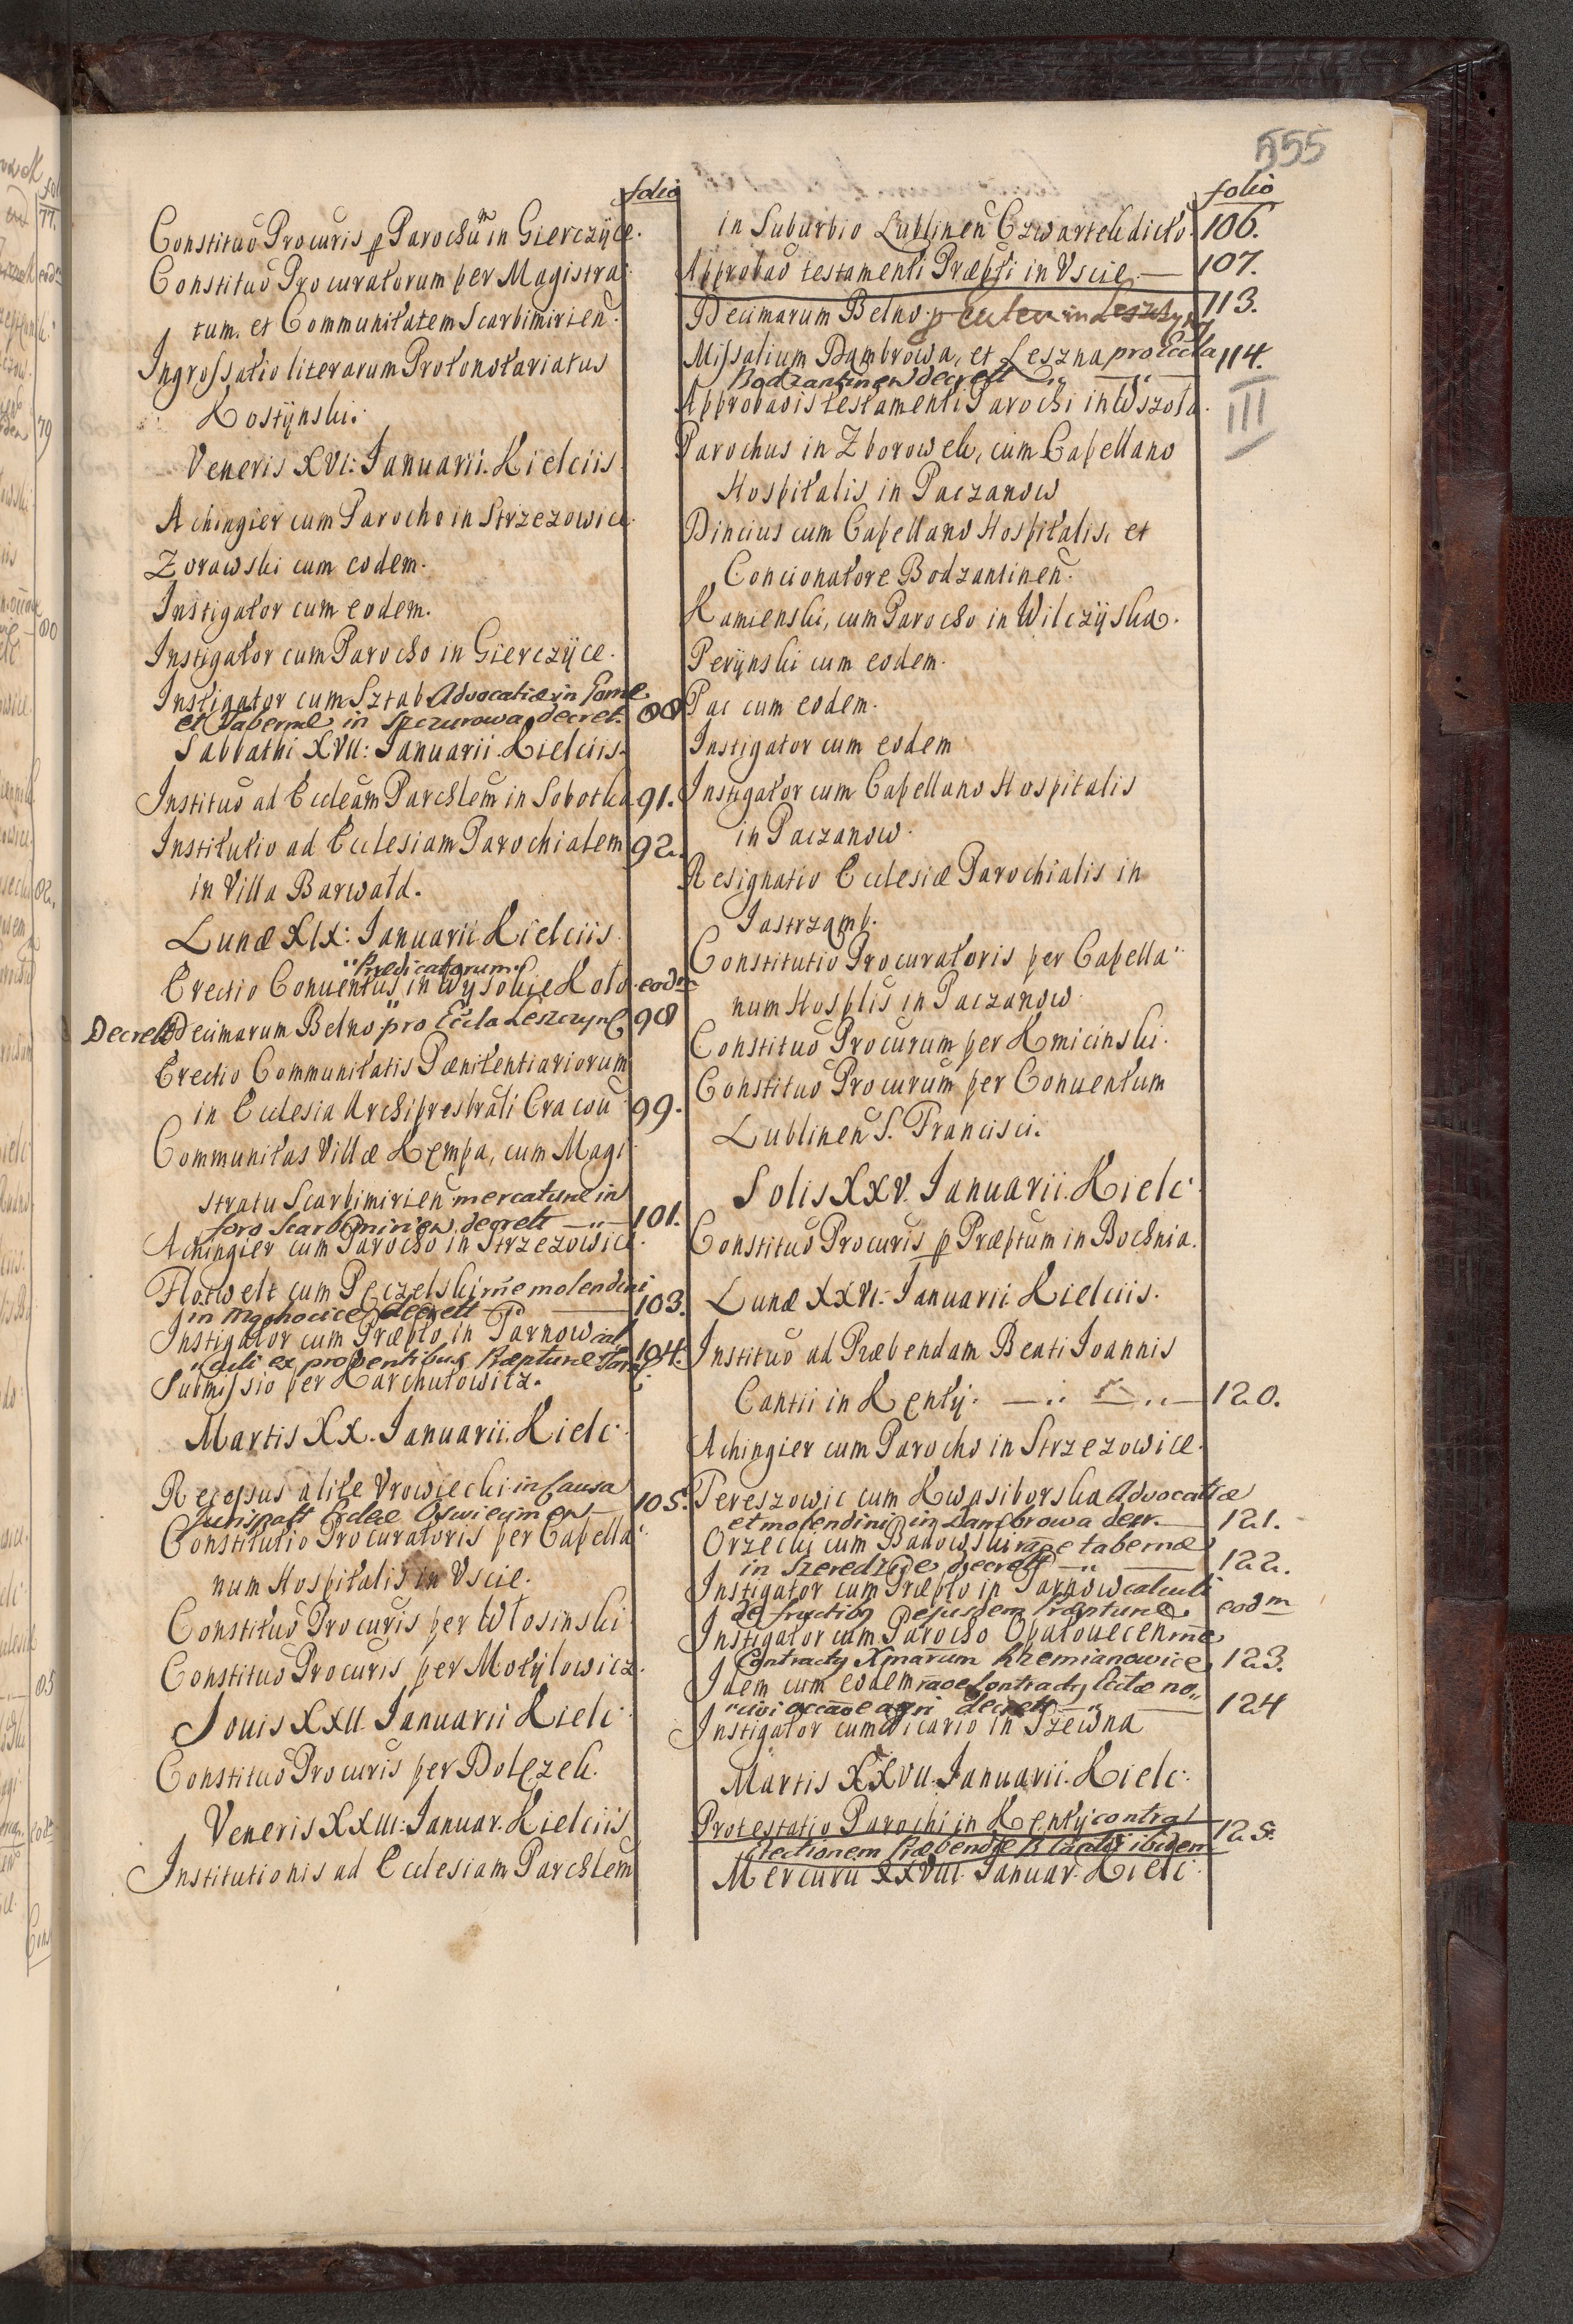 555
folio
Constituo Procuris p Parochum in Gierczÿce.
Constituo Procuratorum per Magistra:
tum, et Communitatem Scarbimirien.
Ingrossatio literarum Protonotariatus
Kostÿnski.
Veneris XVI: Ianuarii. Kielciis
Achingier cum Parocho in Strzezowice.
Zorawski cum eodem.
Instigator cum eodem.
Instigator cum Parocho in Gierczÿce.
Instigator cum Sztab Advocatiæ in
et Tabernæ in Szczurowa decret. 88
Sabbathi XVII: Ianuarii Kielciis.
Instituo ad Eccleam Parchlem in Sobotka 91.
Institutio ad Ecclesiam Parochialem 92.
in Villa Barwald.
Lunæ XIX: Ianuarii Kielciis.
Prædicatorum
Erectio Conuentus in Wysokie Koło. eodm
Decrett Decimarum Belno pro Eccla Leszczyn 98
Erectio Communitatis Pænitentiariorum
in Ecclesia Archipresbrali Cracou 99.
Communitas Villæ Kempa, cum Magi
stratu Scarbimirien mercaturæ in
foro Scarbimirien decrett 101.
Achingier cum Parocho in Strzezowice.
Flotwelt cum Pęczelski rne molendini
in Mnchocice decrett 103.
Instigator cum Præpto in Tarnow cal
culi ex proventibus Præpturæ Tarn 104.
Submissio per Karchutowicz.
Martis XX. Ianuarii. Kielc:
Recessus a lite Vrowiecki in Causa
Eclæ Oswiecimen 105.
Constitutio Procuratoris per Capella:
num Hospitalis in Vscie.
Constituo Procuris per Włosinski
Constituo Procuris per Motÿlowicz.
Iouis XXII. Ianuarii Kielc:
Constituo Procuris per Dołęzek.
Veneris XXIII: Ianuar. Kielciis
Institutionis ad Ecclesiam Parchlem
folio
in Suburbio Lublinen Czwartek dicto. 106.
Approbao testamenti Præpti in Vscie. 107.
Decimarum Belno p 113.
Missalium Dąmbrowa, et Leszna pro Eccla 114.
Bodzantinen decrett
Approbaois testamenti Parochi in Wszoła.
III
Parochus in Zborowek, cum Capellano
Hospitalis in Paczanow
Dincius cum Capellano Hospitalis, et
Concionatore Bodzantinen.
Kamienski, cum Parocho in Wilczÿska.
Perÿnski cum eodem.
Pac cum eodem.
Instigator cum eodem
Instigator cum Capellano Hospitalis
in Paczanow.
Resignatio Ecclesiæ Parochialis in
Iastrząmb.
Constitutio Procuratoris per Capella:
num Hosplis in Paczanow.
Constituo Procurum per Kmicinski.
Constituo Procurum per Conuentum
Lublinen S. Francisci.
Solis XXV. Ianuarii. Kielc:
Constituo Procuris p Præptum in Bochnia.
Lunæ XXVI: Ianuarii Kielciis.
Instituo ad Præbendam Beati Ioannis
Cantii in Kęntÿ. 120.
Achingier cum Parocho in Strzezowice.
Pereszowic cum Kwasiborska Advocatiæ
et molendini in Dambrowa decr. 121.
Orzecki cum Banowski rãoe tabernæ
in Szeredzice decrett 122.
Instigator cum Præpto in Tarnow calculi
de fructib ejusdem Præpturæ eodm
Instigator cum Parocho Opatouecen rne
Contractq Xmarum Krzemianowice 123.
Idem cum eodem rãoe Contractq Eclæ no
agri decrett 124
Instigator cum Vicario in Szewna
Martis XXVII. Ianuarii. Kielc:
Protestatio Parochi in Kęntÿ contra
Electionem Præbendæ B Cantii ibidem 125.
Mercurii XXVIII. Ianuar. Kielc: